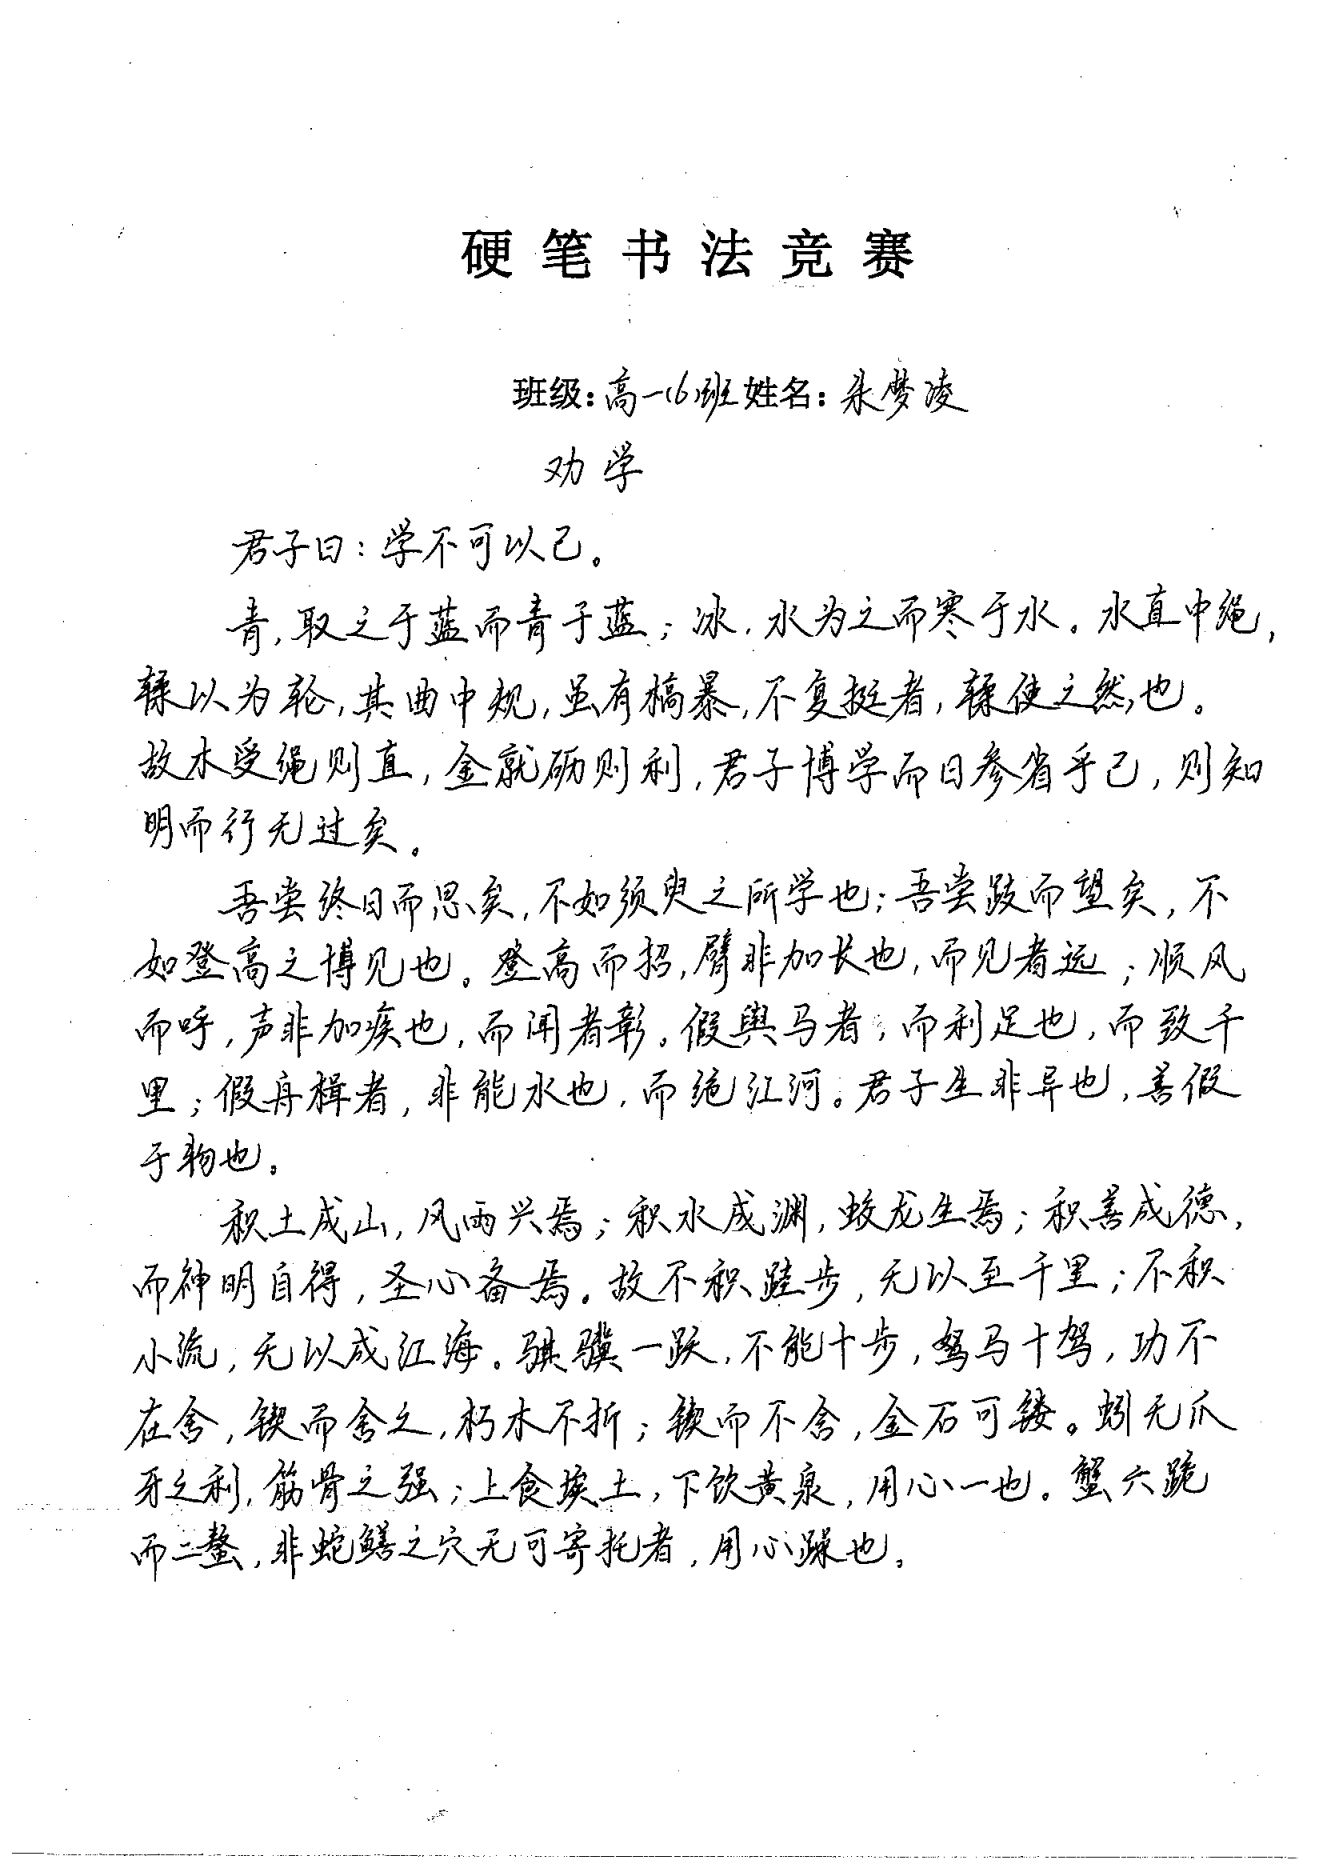 硬笔书法竞赛
班级:高一(6)班姓名:朱梦凌
劝学
君子曰:学不可以已。
青,取之于蓝而青于蓝;冰,水为之而寒于水。木直中绳,
輮以为轮,其曲中规,虽有槁暴,不复挺者,輮使之然也。
故木受绳则直,金就砺则利,君子博学而日参省乎己,则知
明而行无过矣。
吾尝终日而思矣,不如须臾之所学也;吾尝跂而望矣,不
如登高之博见也。登高而招,臂非加长也,而见者远;顺风
而呼,声非加疾也,而闻者彰。假舆马者,而利足也,而致千
里;假舟楫者,非能水也,而绝江河。君子生非异也,善假
于物也。
积土成山,风雨兴焉;积水成渊,蛟龙生焉;积善成德,
而神明自得,圣心备焉。故不积跬步,无以至千里;不积
小流,无以成江海。骐骥一跃,不能十步,驽马十驾,功不
在舍,锲而舍之,朽木不折;锲而不舍,金石可镂。蚓无爪
牙之利,筋骨之强;上食埃土,下饮黄泉,用心一也。蟹六跪
而二螯,非蛇鳝之穴无可寄托者,用心躁也。